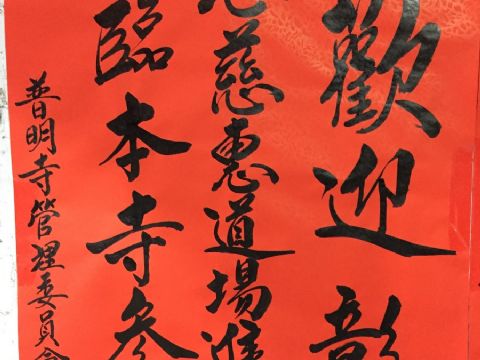 歡迎彰
慈惠道場進
臨本寺參
普明寺管理委員會